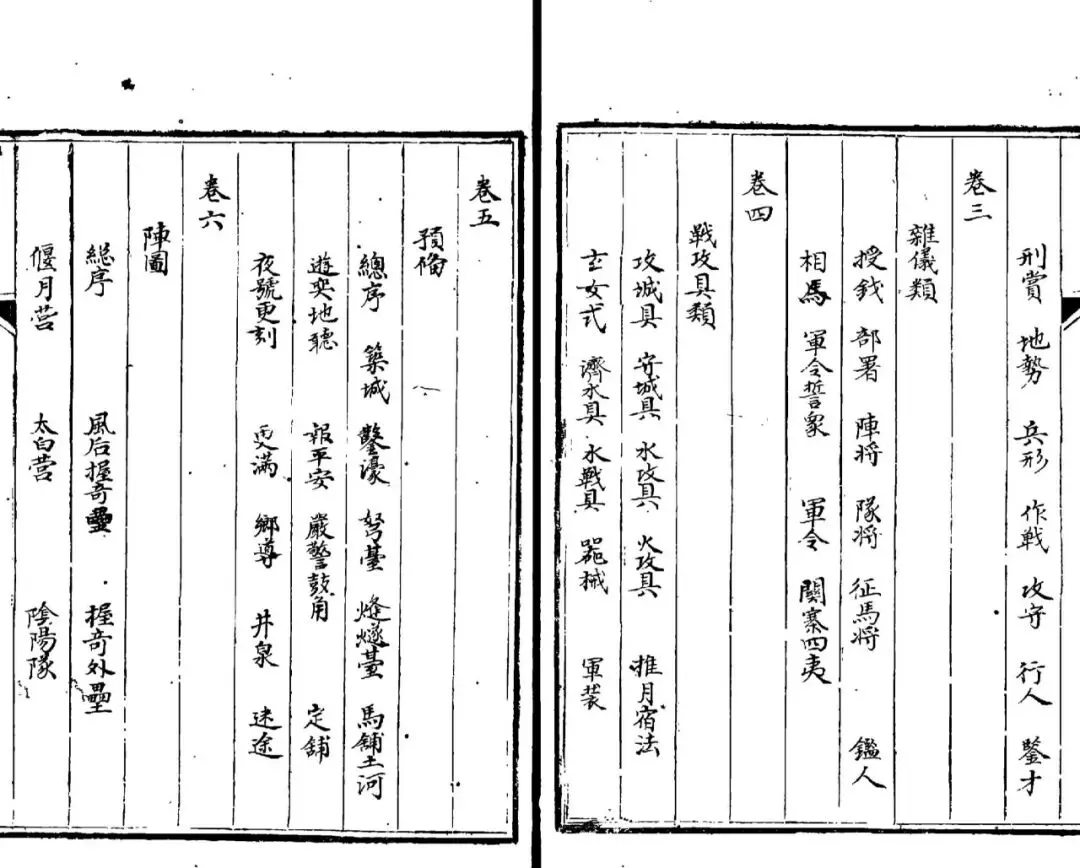 刑賞 地勢 兵形 作戦 攻守 行人 鑒才
卷三
雜儀類
授鉞 部署 陣将 隊将 征馬将 鑑人
相馬 軍令誓衆 軍令 関塞四夷
卷四
戦攻具類
攻城具 守城具 水攻具 火攻具 推月宿法
玄女式 濟水具 水戰具 器械 軍装
卷五
預俻
總序 築城 鑿濠 弩臺 烽燧臺 馬舖土河
遊奕地聽 報平安 嚴警鼓角 定舖
夜號更刻 更满 鄉導 井泉 迷途
卷六
陣圖
総序 風后握奇壘 握奇外壘
偃月营 太白营 陰陽隊